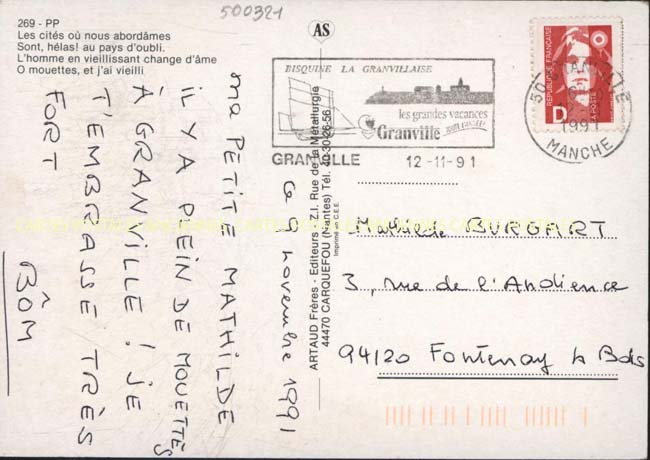 500321
269 - PP
Les cités où nous abordâmes
Sont, hélas! au pays d'oubli.
L'homme en vieillissant change d'âme
O mouettes, et j'ai vieilli
AS
BISQUINE LA GRANVILLAISE
les grandes vacances
Granville
GRANVILLE
12-11-91
REPUBLIQUE FRANÇAISE
D
LA POSTE
1991
MANCHE
ce 9 novembre 1991
ma PETITE MATHILDE
IL Y A PLEIN DE MOUETTES
À GRANVILLE! JE
T'EMBRASSE TRÈS
FORT
BÔM
ARTAUD Frères - Editeurs - Z.I. Rue de la Métallurgie
44470 CARQUEFOU (Nantes) Tél. 40-30-26-56
Imprimé en C.E.E.
Mathilde BURGART
3, rue de l'Audience
94120 Fontenay s/s Bois